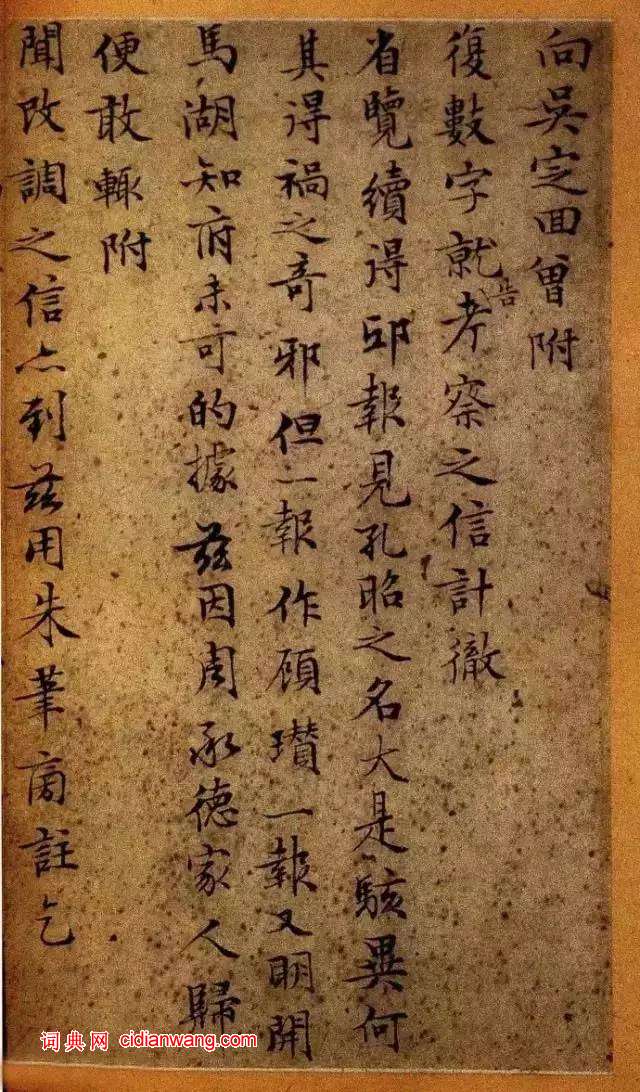 向吳定回曾附
復數字就告考察之信計徹
省覽續得邸報見孔昭之名大是駭異何
其得禍之奇邪但一報作顧瓚一報又明開
馬湖知府未可的據茲因周承德家人歸
便敢輒附
聞改調之信亦到茲用朱筆商註乞
词典网 cidianwang.com